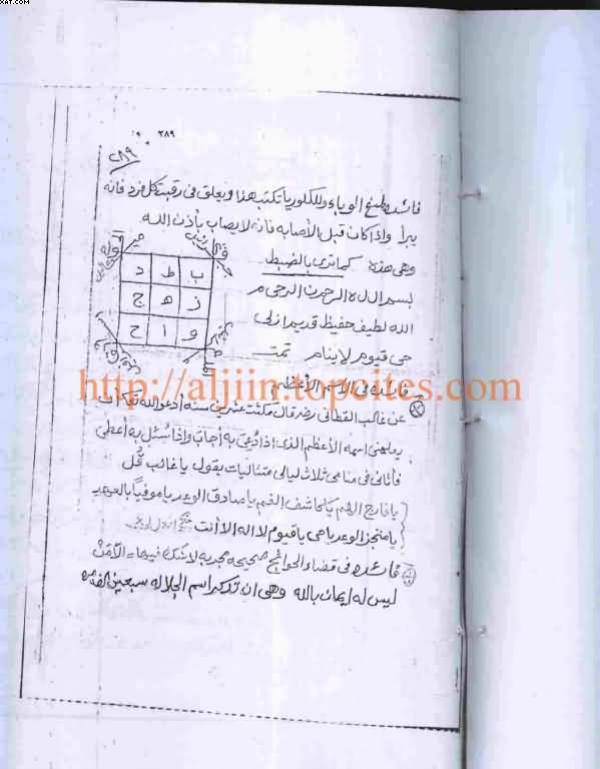 XAT.COM
٢٨٩
٢٨٩
فائدة لمنع الوباء والكلوريا تكتب هذا ويعلق فى رقبة كل فرد فانه
يبرأ واذا كان قبل الأصابه فانه لا يصاب بأذن الله
وهى هذه كما ترى بالضبط
ب ط د
ز ه ج
و ا ح
بسم الله الرحمن الرحيم
الله لطيف حفيظ قديم ازلى
حى قيوم لا ينام تمت
http://aljiin.topcites.com
فائده فى الاسم الأعظم
عن غالب القطانى رضه قال مكثت عشرين سنه أدعو الله تعالى أن
يعلمنى اسمه الأعظم الذى اذا دُعِىَ به أجاب واذا سُئل به أعطى
فأتانى فى منامى ثلاث ليالى متتاليات يقول يا غالب قُل
يا فارج الهم يا كاشف الغم يا صادق الوعد يا موفياً بالعهد
يا منجز الوعد يا حى يا قيوم لا اله الا أنت
فائده فى قضاء الحوائج صحيحه مجربه لا شك فيها الا من
ليس له إيمان بالله وهى ان تذكر اسم الجلاله سبعين الف